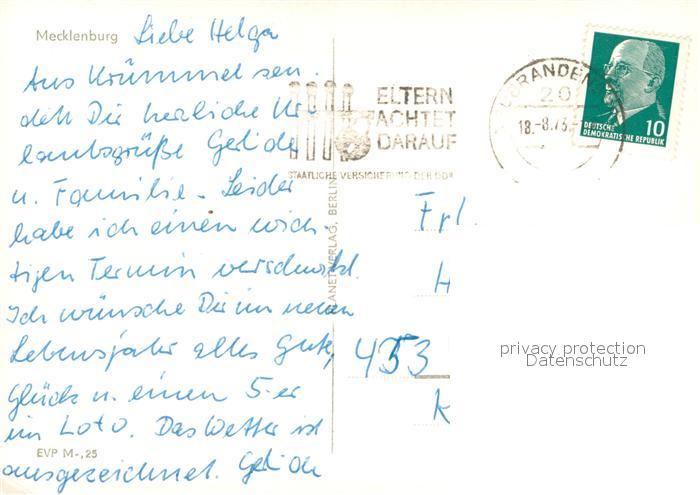 Mecklenburg
Liebe Helga
Aus Krümmel sen-
det Dir herzliche Ur-
laubsgrüße Gerlinde
u. Familie. Leider
habe ich einen wich-
tigen Termin verschwitzt.
Ich wünsche Dir im neuen
Lebensjahr alles Gute,
Glück u. einen 5-er
im Loto. Das Wetter ist
ausgezeichnet. Gerlinde
EVP M -,25
PLANET-VERLAG, BERLIN
ELTERN
ACHTET
DARAUF
STAATLICHE VERSICHERUNG DER DDR
BRANDEN
20
18.-8.73.
DEUTSCHE
DEMOKRATISCHE REPUBLIK
10
Frl.
H
453
K
privacy protection
Datenschutz